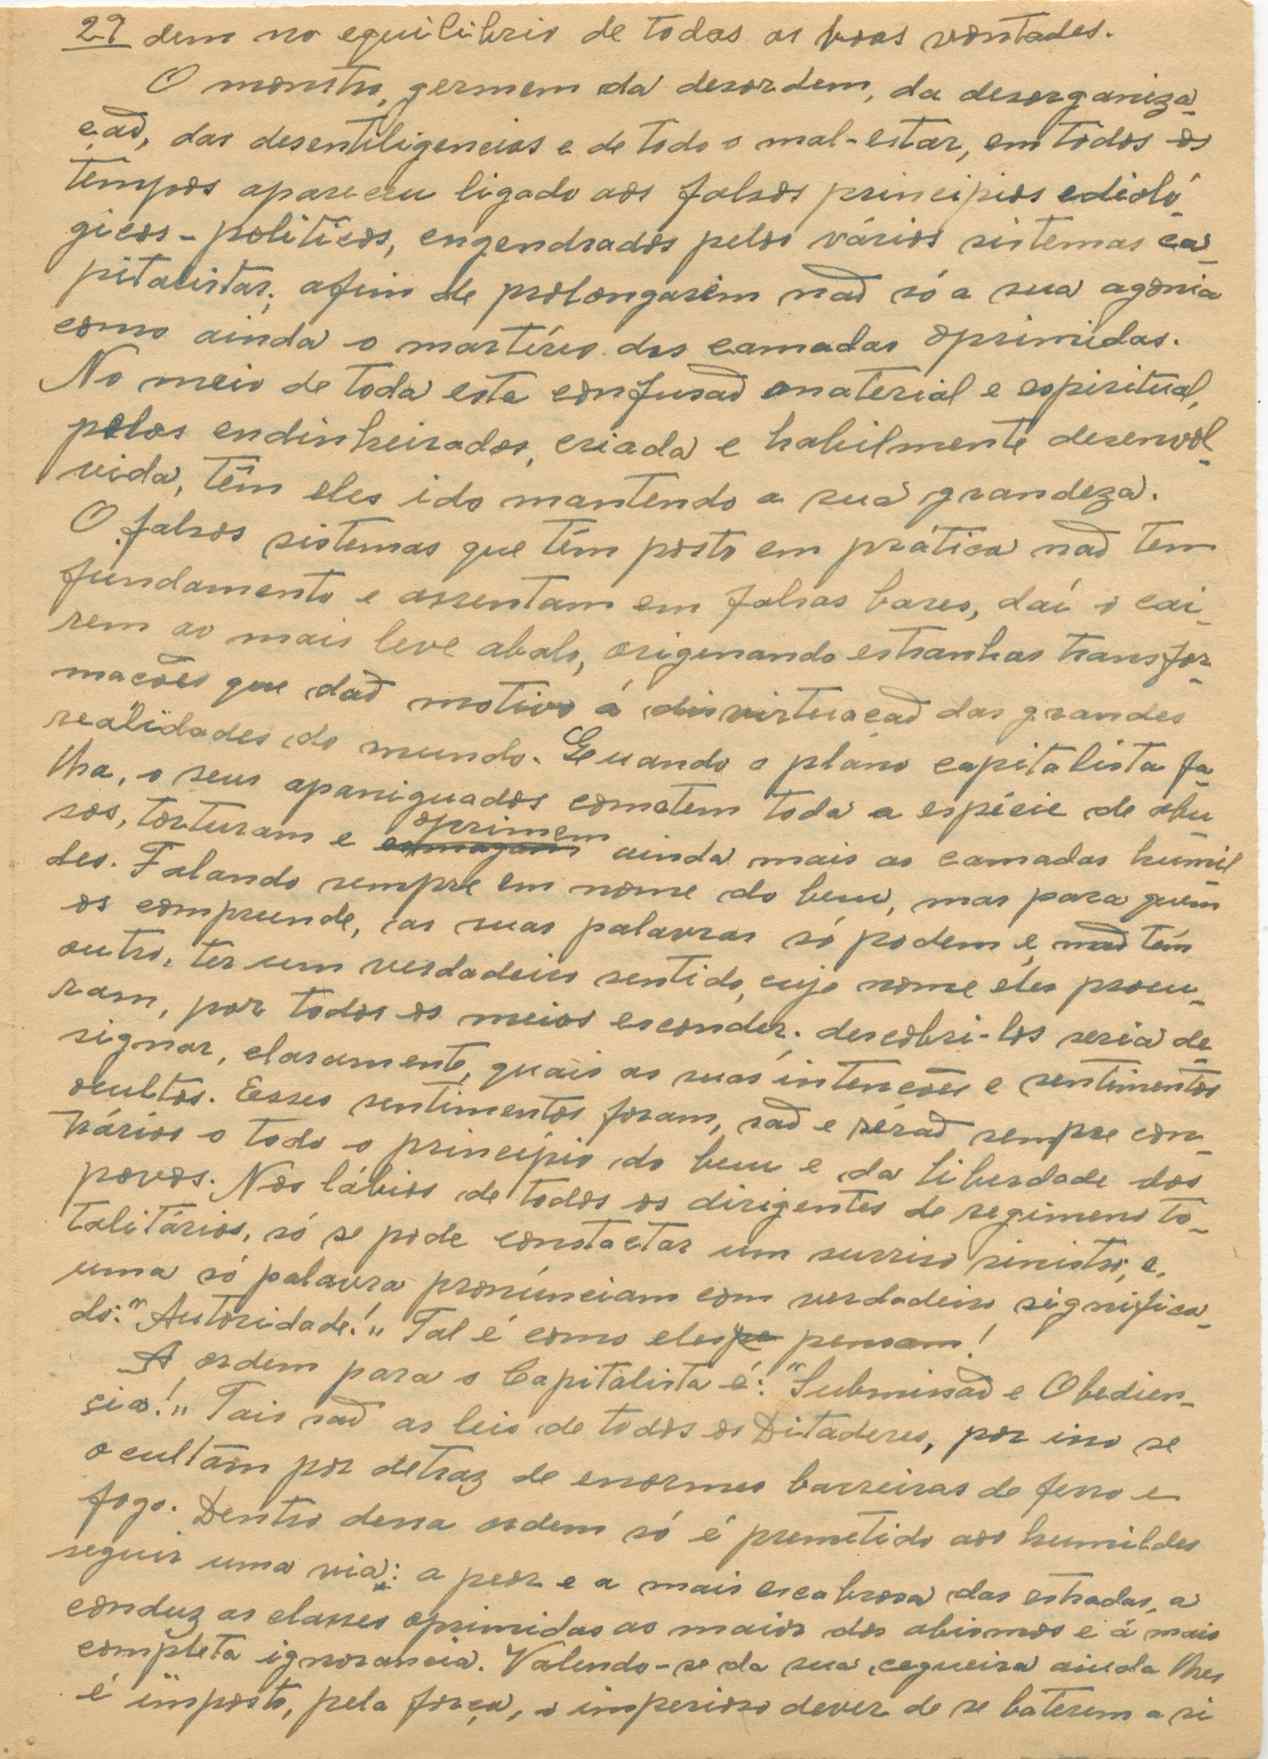 29 dem no equilibrio de todas as boas vontades.
O monstro, germem da desordem, da desorganiza-
ção, das desentiligencias e de todo o mal-estar, em todos os
tempos apareceu ligado aos falsos principios edioló-
gicos-politicos, engendrados pelos vários sistemas ca-
pitalistas; afim de prolongarem não só a sua agonia
como ainda o martírio das camadas oprimidas.
No meio de toda esta confusão material e espiritual,
pelos endinheirados, criada e habilmente desenvol-
vida, têm eles ido mantendo a sua grandeza.
O falsos sistemas que têm posto em prática não tem
fundamento e assentam em falsas bases, daí o cai-
rem ao mais leve abalo, origenando estranhas transfor-
mações que dão motivo á disvirtuação das grandes
realidades do mundo. Quando o plano capitalista fa-
lha, o seus apaniguados cometem toda a espécie de abu-
sos, torturam e oprimem ainda mais as camadas humil-
des. Falando sempre em nome do bem, mas para quem
os compreende, as suas palavras só podem e, não têm
outro, ter um verdadeiro sentido, cujo nome eles procu-
ram, por todos os meios esconder; descobri-los seria de-
signar, claramente, quais as suas intenções e sentimentos
ocultos. Esses sentimentos foram, são e sérão sempre con-
trários o todo o princípio do bem e da liberdade dos
povos. Nos lábios de todos os dirigentes de regimens to-
talitários, só se pode constactar um surriso sinistro, e,
uma só palavra pronúnciam com verdadeiro significa-
do: "Autoridade!" Tal é como eles pensam!
A ordem para o Capitalista é: "Submissão e Obedien-
cia!" Tais são as leis de todos os Ditadores, por isso se
ocultam por detraz de enormes barreiras de ferro e
fogo. Dentro dessa ordem só é premetido aos humildes
seguir uma via: a peor e a mais escabrosa das estradas, a
conduz as classes oprimidas ao maior dos abismos e á mais
completa ignorancia. Valendo-se da sua cegueira ainda lhes
é imposto, pela força, o imperioso dever de se baterem a si